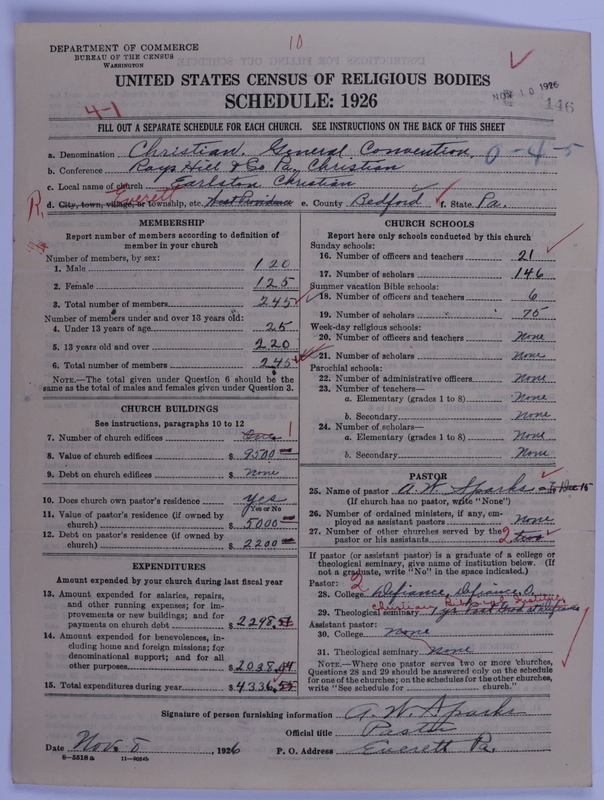 10
DEPARTMENT OF COMMERCE
BUREAU OF THE CENSUS
WASHINGTON
UNITED STATES CENSUS OF RELIGIOUS BODIES
SCHEDULE: 1926
NOV 10 1926
146
4-1
FILL OUT A SEPARATE SCHEDULE FOR EACH CHURCH. SEE INSTRUCTIONS ON THE BACK OF THIS SHEET
a. Denomination Christian, General Convention, 0-4-5
b. Conference Rays Hill & So Pa, Christian
c. Local name of church Earlston Christian
R. Everett
d. City, town, village, or township, etc. West Providence e. County Bedford f. State Pa.
MEMBERSHIP
Report number of members according to definition of
member in your church
Number of members, by sex:
1. Male 120
2. Female 125
3. Total number of members 245
Number of members under and over 13 years old:
4. Under 13 years of age 25
5. 13 years old and over 220
6. Total number of members 245
NOTE.—The total given under Question 6 should be the
same as the total of males and females given under Question 3.
CHURCH BUILDINGS
See instructions, paragraphs 10 to 12
7. Number of church edifices One 1
8. Value of church edifices $ 9500
9. Debt on church edifices $ None
10. Does church own pastor's residence yes
Yes or No
11. Value of pastor's residence (if owned by
church) $ 5000
12. Debt on pastor's residence (if owned by
church) $ 2200
EXPENDITURES
Amount expended by your church during last fiscal year
13. Amount expended for salaries, repairs,
and other running expenses; for im-
provements or new buildings; and for
payments on church debt $ 2298.51
14. Amount expended for benevolences, in-
cluding home and foreign missions; for
denominational support; and for all
other purposes $ 2038.04
15. Total expenditures during year $ 4336.55
CHURCH SCHOOLS
Report here only schools conducted by this church
Sunday schools:
16. Number of officers and teachers 21
17. Number of scholars 146
Summer vacation Bible schools:
18. Number of officers and teachers 6
19. Number of scholars 75
Week-day religious schools:
20. Number of officers and teachers None
21. Number of scholars None
Parochial schools:
22. Number of administrative officers None
23. Number of teachers—
a. Elementary (grades 1 to 8) None
b. Secondary None
24. Number of scholars—
a. Elementary (grades 1 to 8) None
b. Secondary None
PASTOR
25. Name of pastor A. W. Sparks
(If church has no pastor, write "None")
26. Number of ordained ministers, if any, em-
ployed as assistant pastors None
27. Number of other churches served by the
pastor or his assistants 2 two
If pastor (or assistant pastor) is a graduate of a college or
theological seminary, give name of institution below. (If
not a graduate, write "No" in the space indicated.)
Pastor: 2
28. College Defiance, Defiance, O.
Christian Biblical Institute
29. Theological seminary 1 yr Post Grad at Defiance
Assistant pastor:
30. College None
31. Theological seminary None
NOTE.—Where one pastor serves two or more churches,
Questions 28 and 29 should be answered only on the schedule
for one of the churches; on the schedules for the other churches,
write "See schedule for ........ church."
Signature of person furnishing information A. W. Sparks
Official title Pastor
Date Nov. 8, 1926 P. O. Address Everett Pa.
8—5518 a 11—9064b